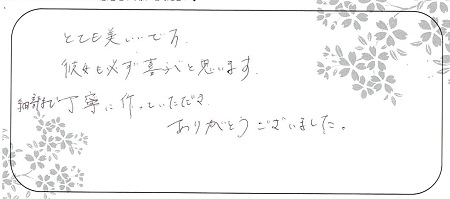 とても美しいです。
彼女も必ず喜ぶと思います。
細部まで丁寧に作っていただき
ありがとうございました。